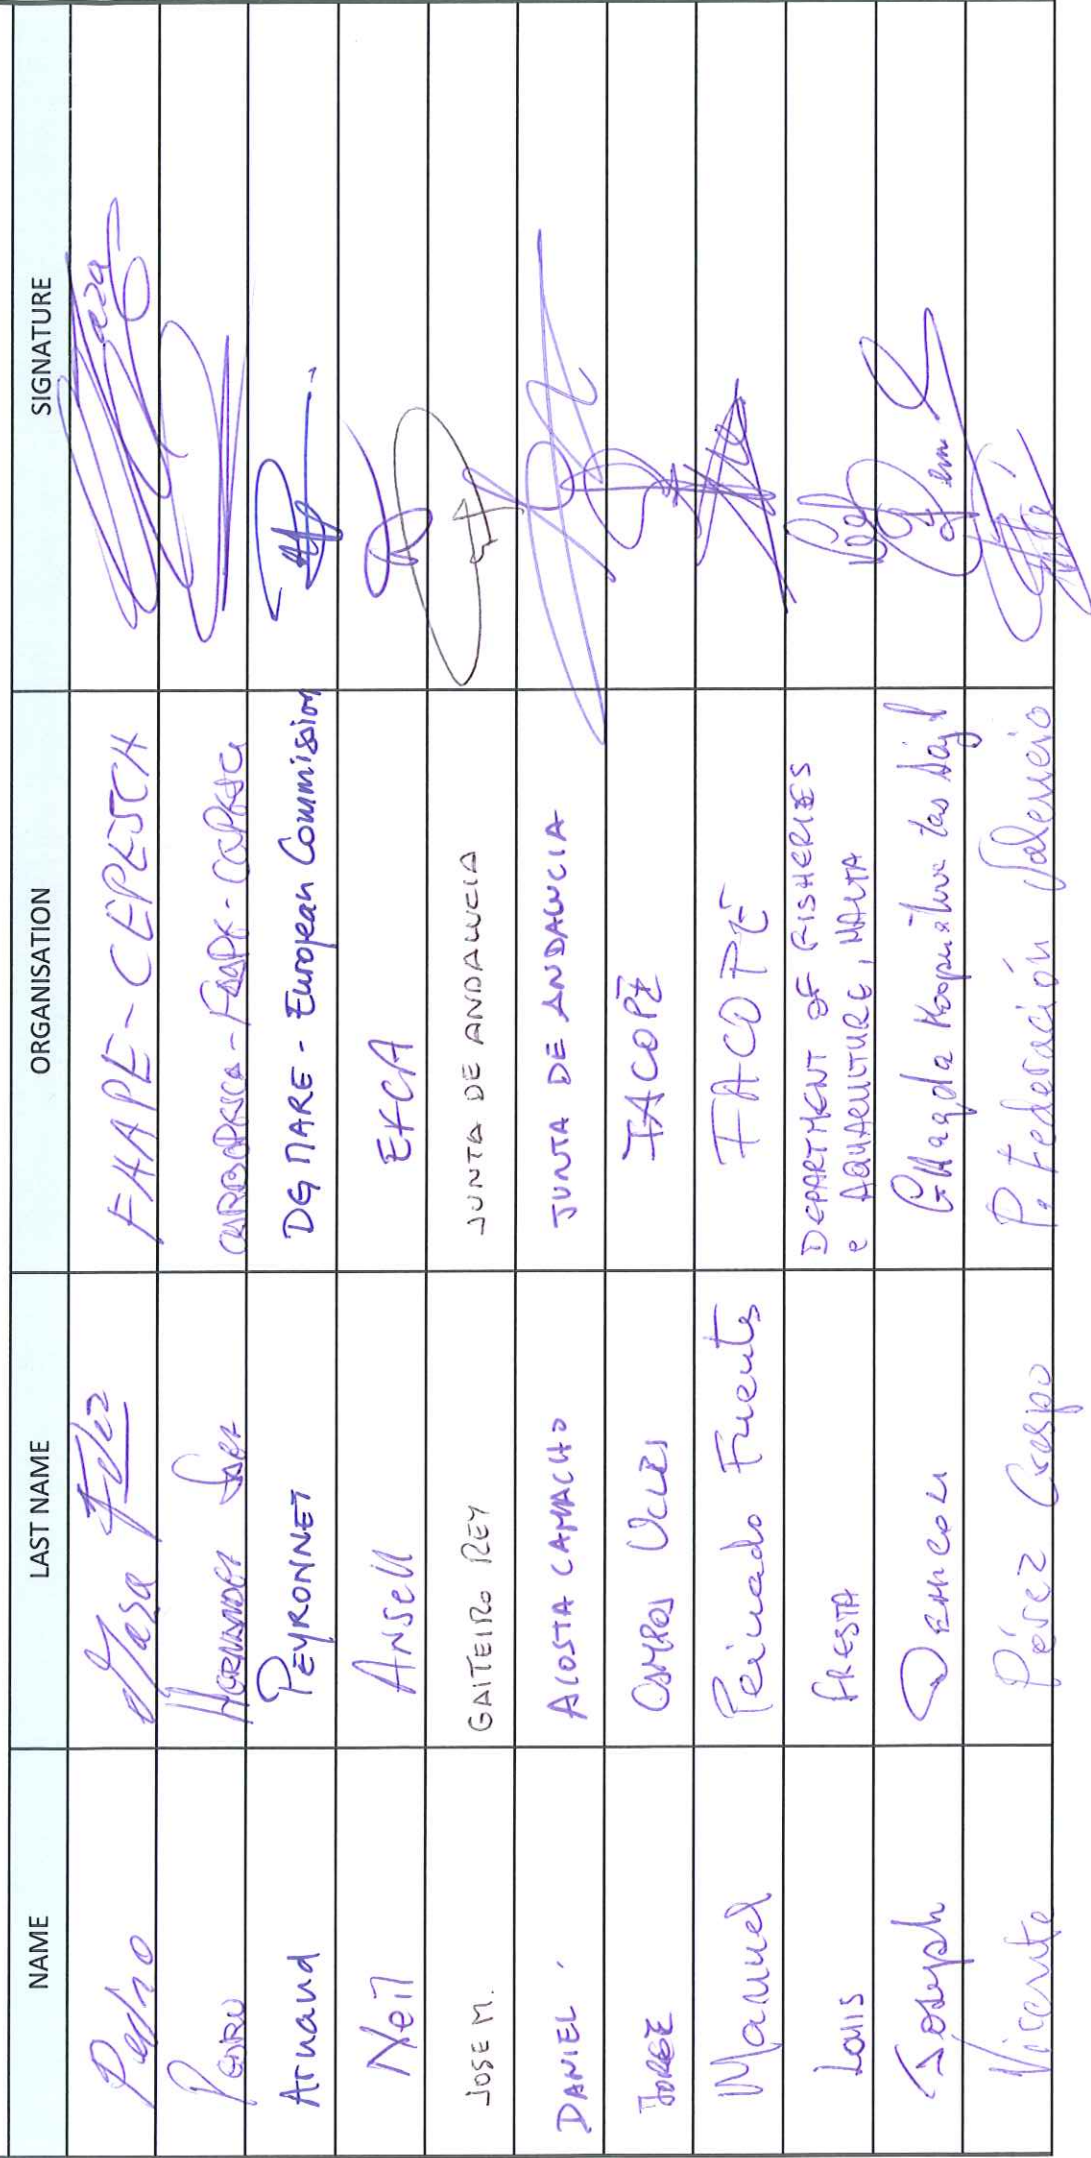 NAME LAST NAME ORGANISATION SIGNATURE
Pedro Maza Fdez FAAPE - CEPESCA
Pedro Hernandez Saez CARBOPESCA - FAAPE - CEPESCA
Arnaud PEYRONNET DG MARE - European Commission
Neil Ansell EFCA
JOSE M. GAITEIRO REY JUNTA DE ANDALUCIA
DANIEL. ACOSTA CAMACHO JUNTA DE ANDALUCIA
JORGE CAMPOS UCLES FACOPE
Manuel Peinado Fuentes FACOPE
Louis FRESTA DEPARTMENT OF FISHERIES
e AQUACULTURE, MALTA
Joseph DEMICOLI GHaqda Kooperattiva tas-Sajd
Vicente Pérez Crespo P. Federación